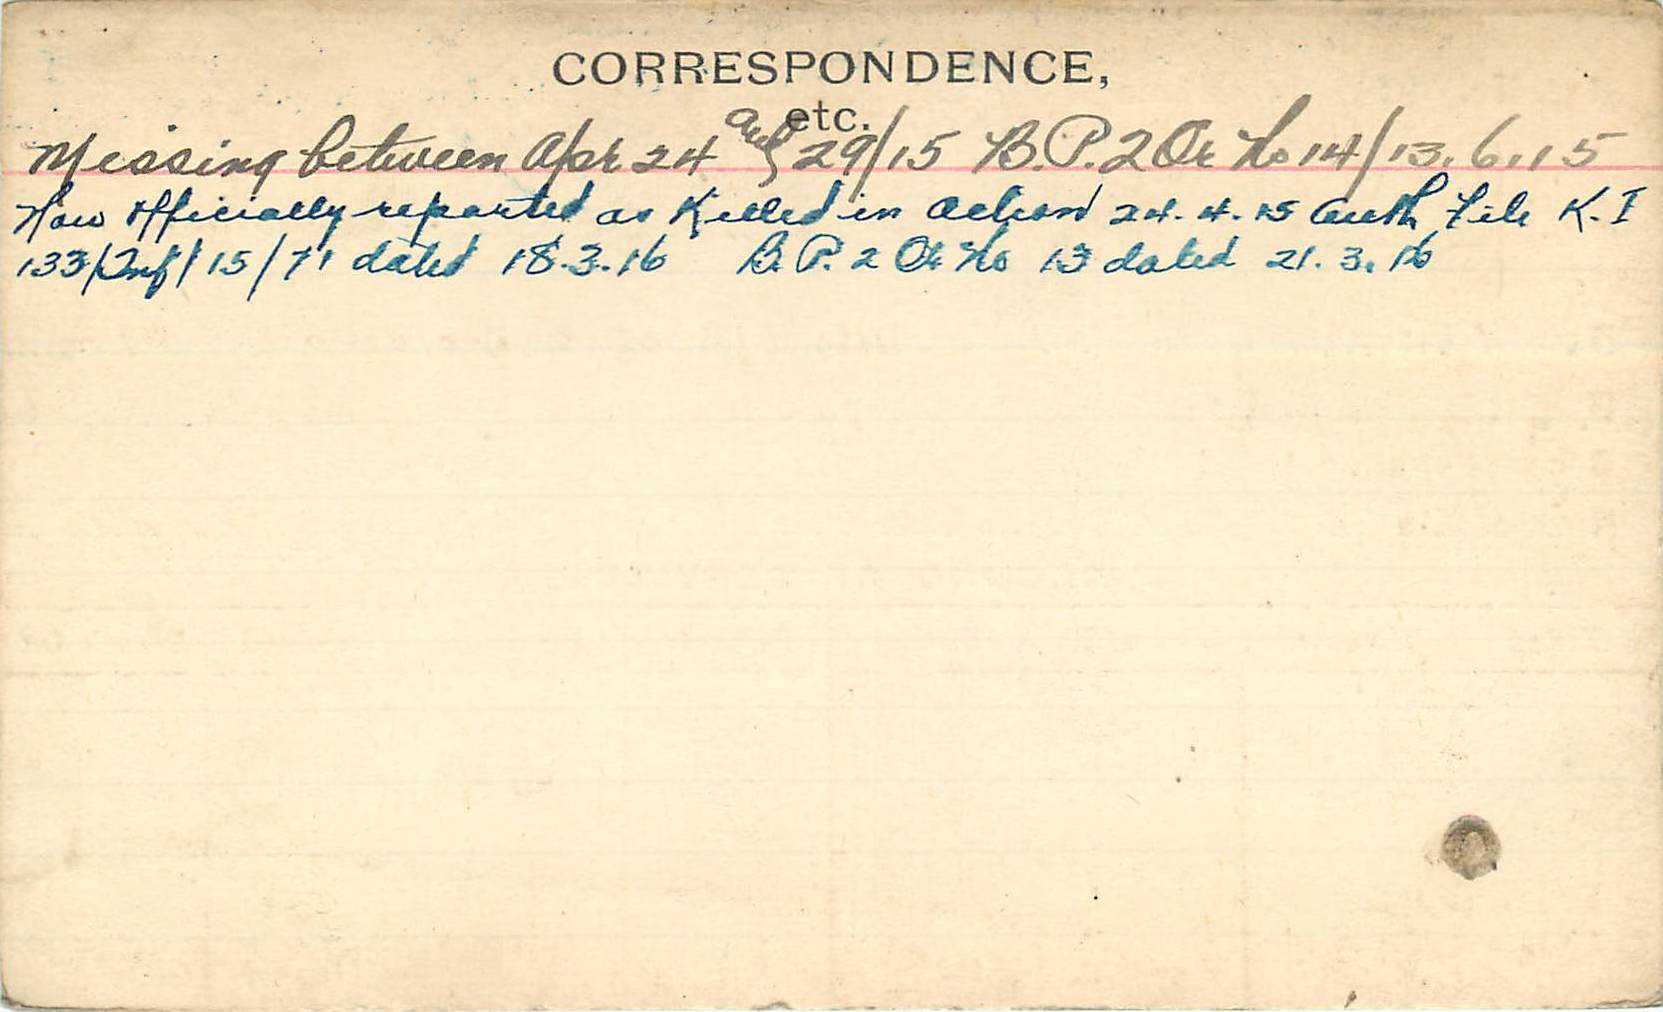 CORRESPONDENCE,
etc.
Missing between Apr 24 and 29/15 B.P.2 Or No 14/13.6.15
Now officially reported as Killed in action 24.4.15 Auth File K.I
133/Inf/15/71 dated 18.3.16 B.P. 2 Or No 13 dated 21.3.16